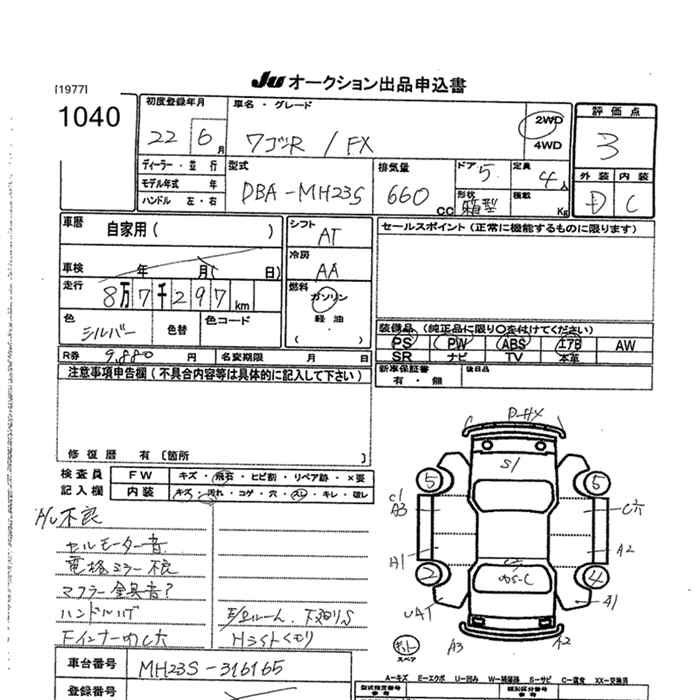 JU オークション出品申込書
[1977]
1040
初度登録年月
22 6月
車名・グレード
ワゴンR / FX
2WD
4WD
評価点
3
外装 内装
D C
ディーラー・並行
モデル年式 年
ハンドル 左・右
型式
DBA-MH23S
排気量
660 CC
ドア 5
形状 箱型
定員 4人
積載 Kg
車歴 自家用( )
車検 年 月( 日)
走行 8万7千297 km
色 シルバー 色替 色コード
R券 9,880 円 名変期限 月 日
シフト AT
冷房 AA
燃料 ガソリン
軽油
( )
セールスポイント(正常に機能するものに限ります)
装備品(純正品に限り○を付けてください)
PS PW ABS エアB AW
SR ナビ TV 本革
新車保証書
有・無
後日品
注意事項申告欄(不具合内容等は具体的に記入して下さい)
修復歴 有[箇所 ]
検査員
記入欄
FW キズ・飛石・ヒビ割・リペア跡・×要
内装 キズ・汚れ・コゲ・穴・スレ・キレ・破レ
不良
セルモーター音
電格ミラー不良
マフラー金具音?
ハンドルハゲ
下廻りS
車台番号 MH23S-316165
登録番号
S1
5
5
C1
A3
A1
2
4
A2
A1
A3
A2
スペア
A-キズ E-エクボ U-凹み W-補修跡 S-サビ C-腐食 XX-交換済
型式指定番号
参考
類別区分番号
参考